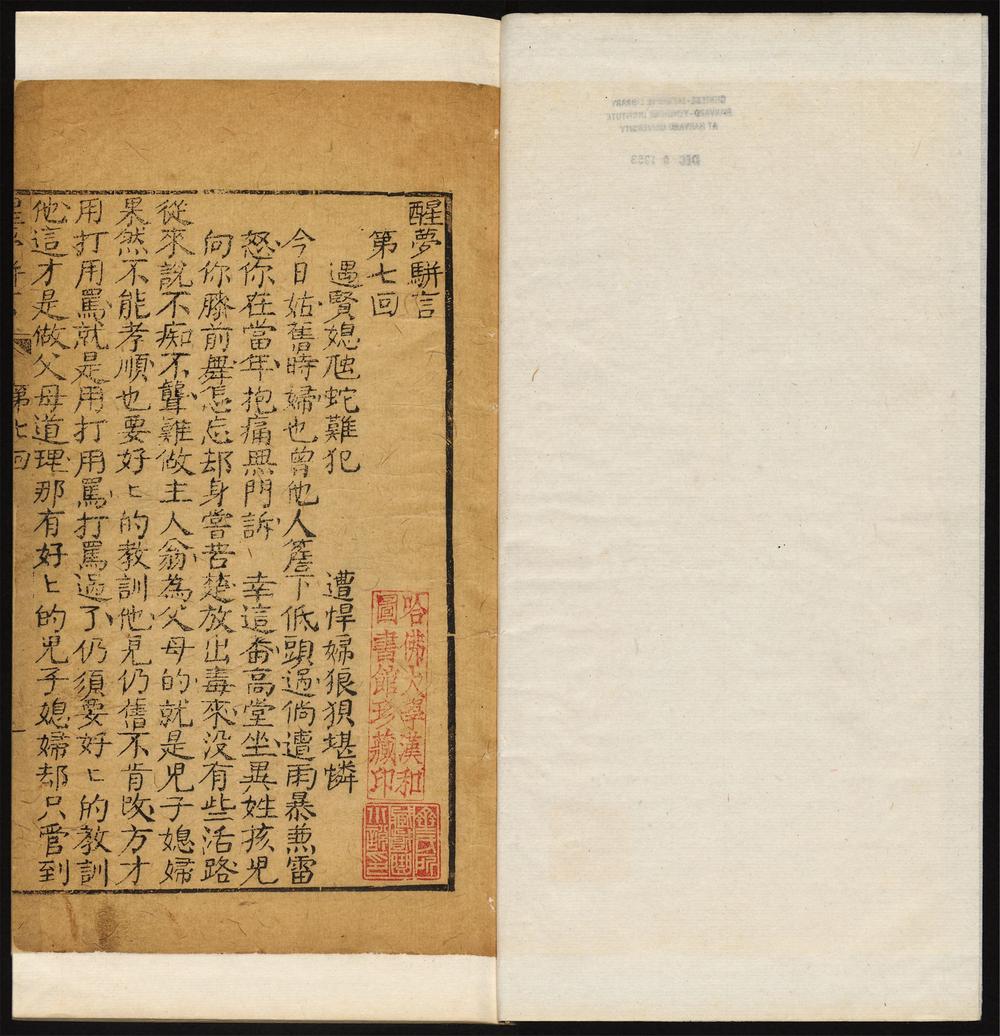 醒夢駢言
第七回
遇賢媳虺蛇難犯　遭悍婦狼狽堪憐
今日姑舊時婦也曾他人簷下低頭過倘遭雨暴兼雷
怒你在當年抱痛無門訴　幸這畨高堂坐異姓孩兒
向你膝前舞怎忘却身嘗苦楚放出毒來没有些活路
從來說不痴不聾難做主人翁為父母的就是児子媳婦
果然不能孝順也要好〻的教訓他見仍舊不肯改方才
用打用罵就是用打用罵打罵過了仍須要好〻的教訓
他這才是做父母道理那有好〻的児子媳婦都只管到
第七回
一
哈佛大學漢和
圖書館珍藏印
CHINESE-JAPANESE LIBRARY
HARVARD-YENCHING INSTITUTE
AT HARVARD UNIVERSITY
DEC 1953